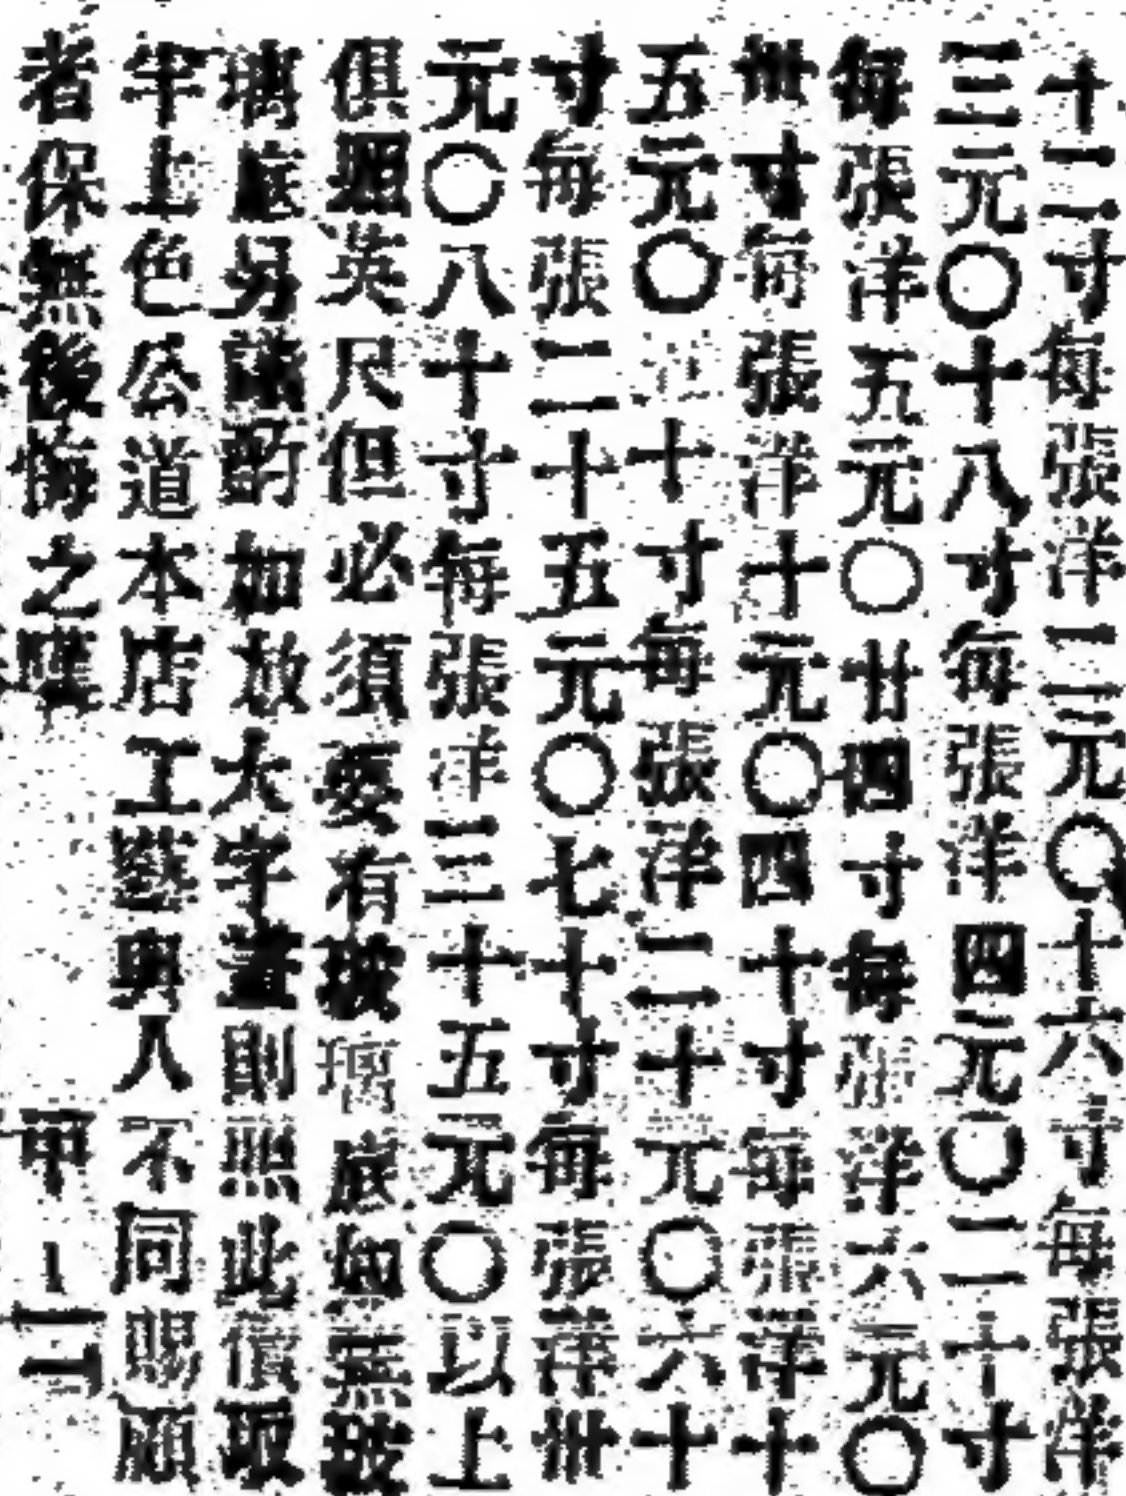 十二寸每張洋二元〇十六寸每張洋
三元〇十八寸每張洋四元〇二十寸
每張洋五元〇廿四寸每張洋六元〇
卅寸每張洋十元〇四十寸每張洋十
五元〇五十寸每張洋二十元〇六十
寸每張二十五元〇七十寸每張洋卅
元〇八十寸每張洋三十五元〇以上
俱照英尺但必須要有玻璃底如無玻
璃底另議酌加放大字畫則照此價取
牢上色公道本店工藝與人不同賜顧
者保無後悔之嘆 甲